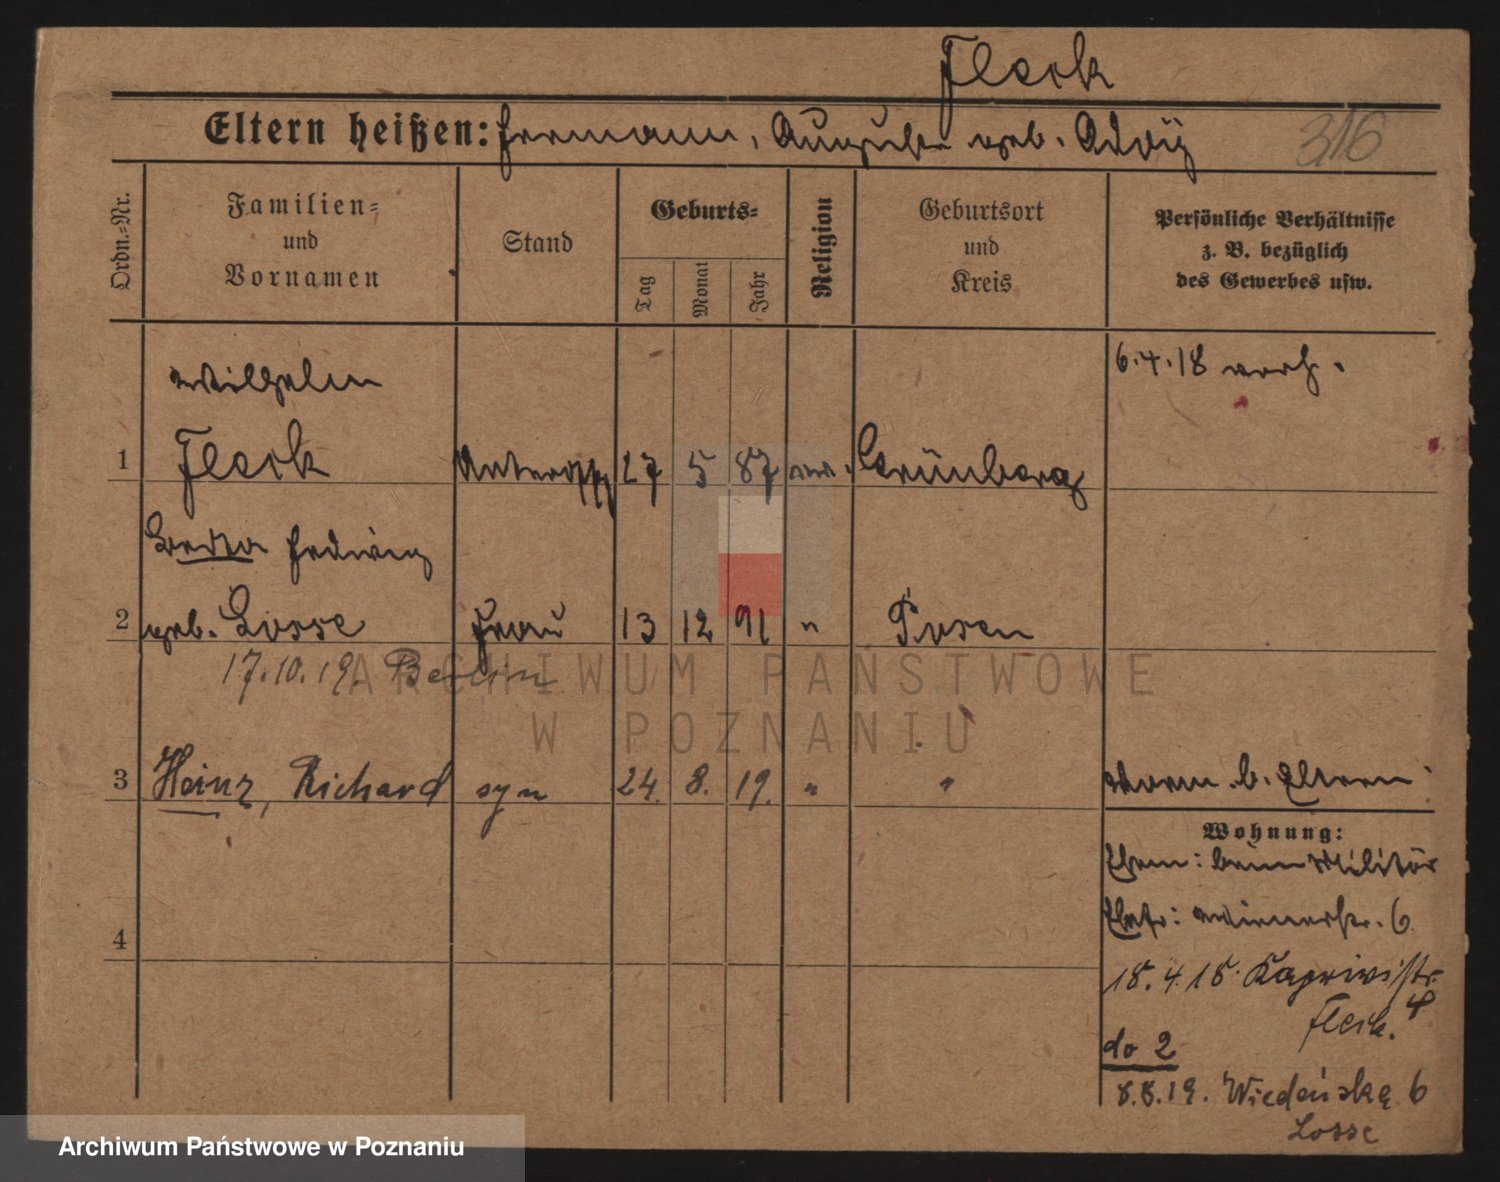 Fleck
Eltern heißen: Hermann, Auguste geb. Adviz
316
Ordn.-Nr.
Familien-
und
Vornamen
Stand
Geburts-
Tag
Monat
Jahr
Religion
Geburtsort
und
Kreis
Persönliche Verhältnisse
z. B. bezüglich
des Gewerbes usw.
Wilhelm
6.4.18 verh.
1 Fleck Unteroffz 27 5 87 ev. Grünberg
Berta Hedwig
2 geb. Losse Frau 13 12 91 " Posen
17.10.19. Berlin
3 Heinz, Richard syn 24. 8. 19. " "
b. Eltern
Wohnung:
Ehem: beim Militär
Ehefr: Wienerstr. 6
4
18.4.18. Kaprivistr. 4
Fleck.
do 2
8.8.19. Wiedeńska 6
Losse
ARCHIWUM PAŃSTWOWE
W POZNANIU
Archiwum Państwowe w Poznaniu